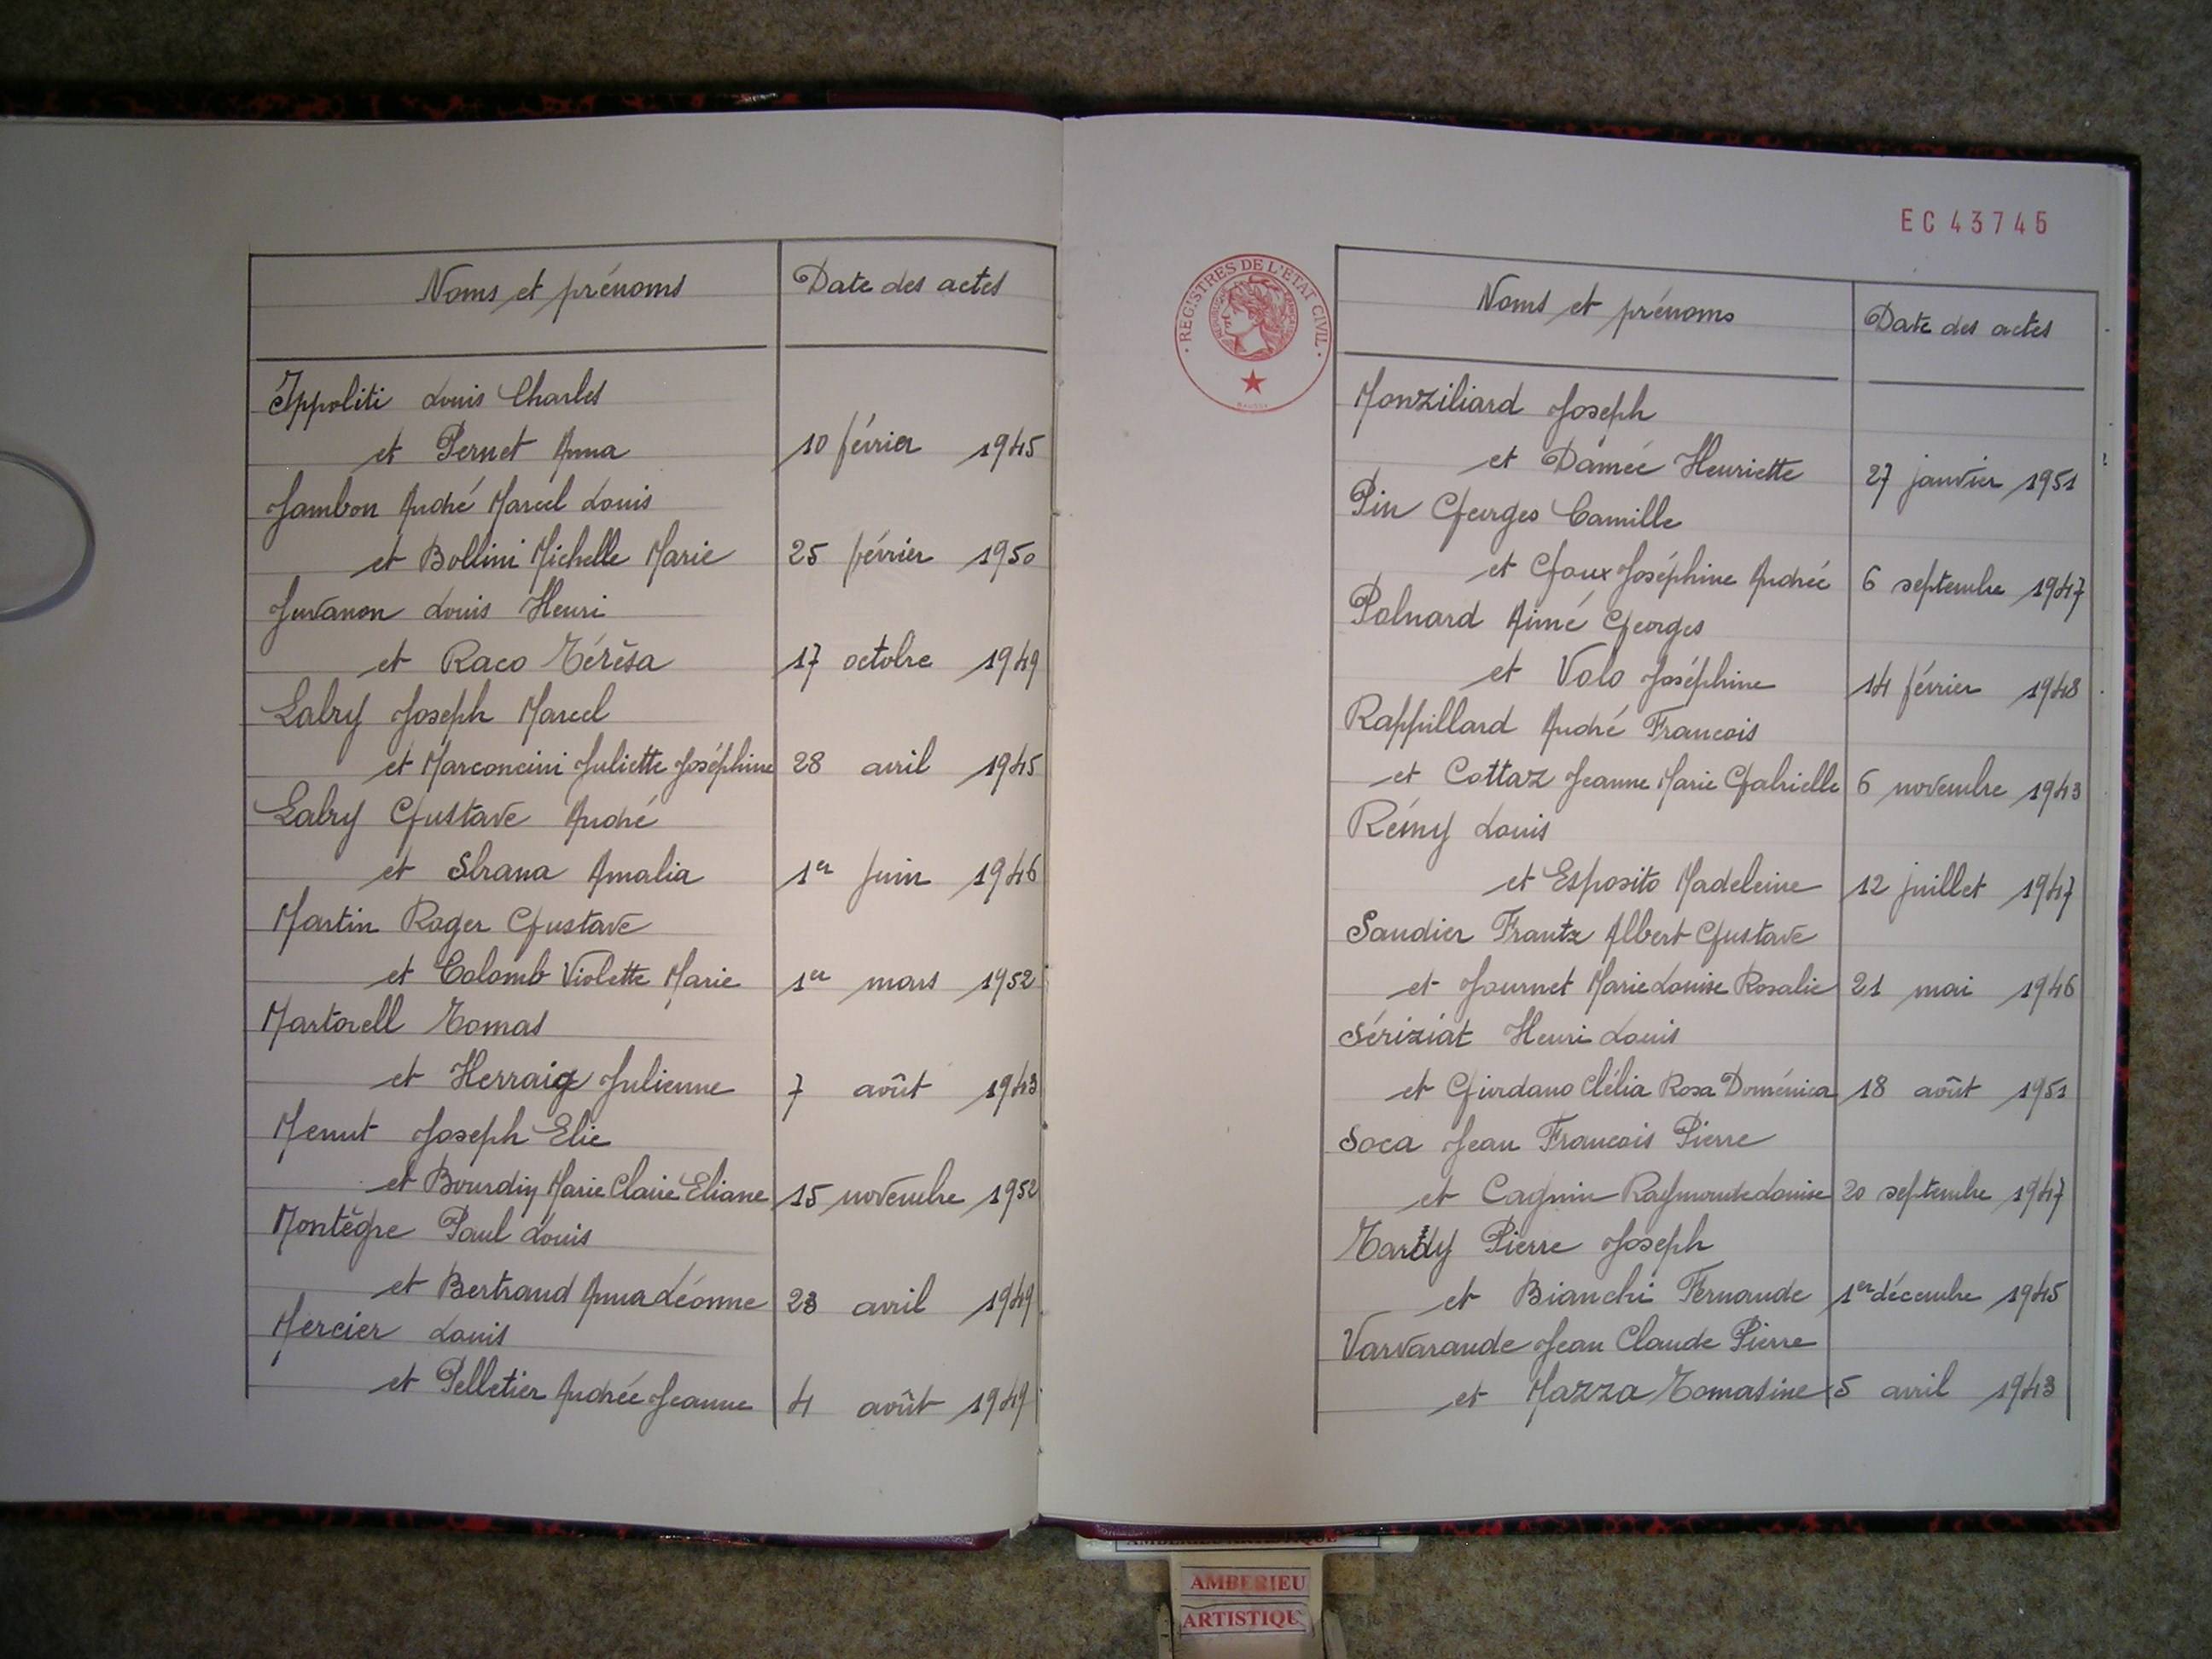 Noms et prénoms Date des actes
Ippoliti Louis Charles
et Pernet Anna 10 février 1945
Jambon André Marcel Louis
et Bollini Michelle Marie 25 février 1950
Juvanon Louis Henri
et Raco Térèsa 17 octobre 1949
Labry Joseph Marcel
et Marconcini Juliette Joséphine 28 avril 1945
Labry Gustave André
et Sbrana Amalia 1er juin 1946
Martin Roger Gustave
et Colomb Violette Marie 1er mars 1952
Martorell Tomas
et Herraig Julienne 7 août 1943
Menut Joseph Elie
et Bourdin Marie Claire Eliane 15 novembre 1952
Montègre Paul Louis
et Bertrand Anna Léonne 23 avril 1949
Mercier Louis
et Pelletier Andrée Jeanne 4 août 1949
EC 43745
REGISTRES DE L'ETAT CIVIL
Noms et prénoms Date des actes
Monziliard Joseph
et Damée Henriette 27 janvier 1951
Pin Georges Camille
et Goux Joséphine Andrée 6 septembre 1947
Polnard Aimé Georges
et Volo Joséphine 14 février 1948
Rappillard André Francois
et Cottaz Jeanne Marie Gabrielle 6 novembre 1943
Rémy Louis
et Esposito Madeleine 12 juillet 1947
Saudier Frantz Albert Gustave
et Journet Marie Louise Rosalie 21 mai 1946
Sériziat Henri Louis
et Giordano Clélia Rosa Doménica 18 août 1951
Soca Jean Francois Pierre
et Cagnin Raymonde Louise 20 septembre 1947
Tardy Pierre Joseph
et Bianchi Fernande 1er décembre 1945
Varvarande Jean Claude Pierre
et Mazza Tomasine 5 avril 1943
AMBERIEU
ARTISTIQU